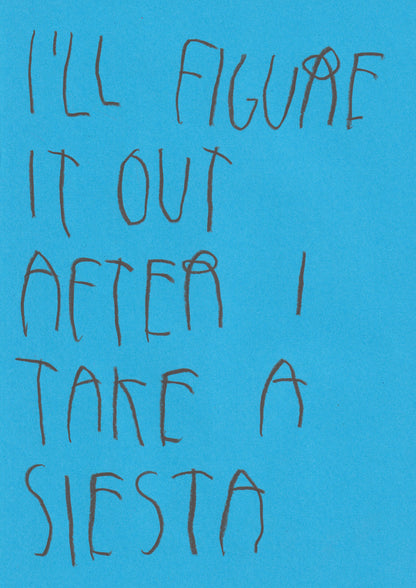 I'LL FIGURE
IT OUT
AFTER I
TAKE A
SIESTA